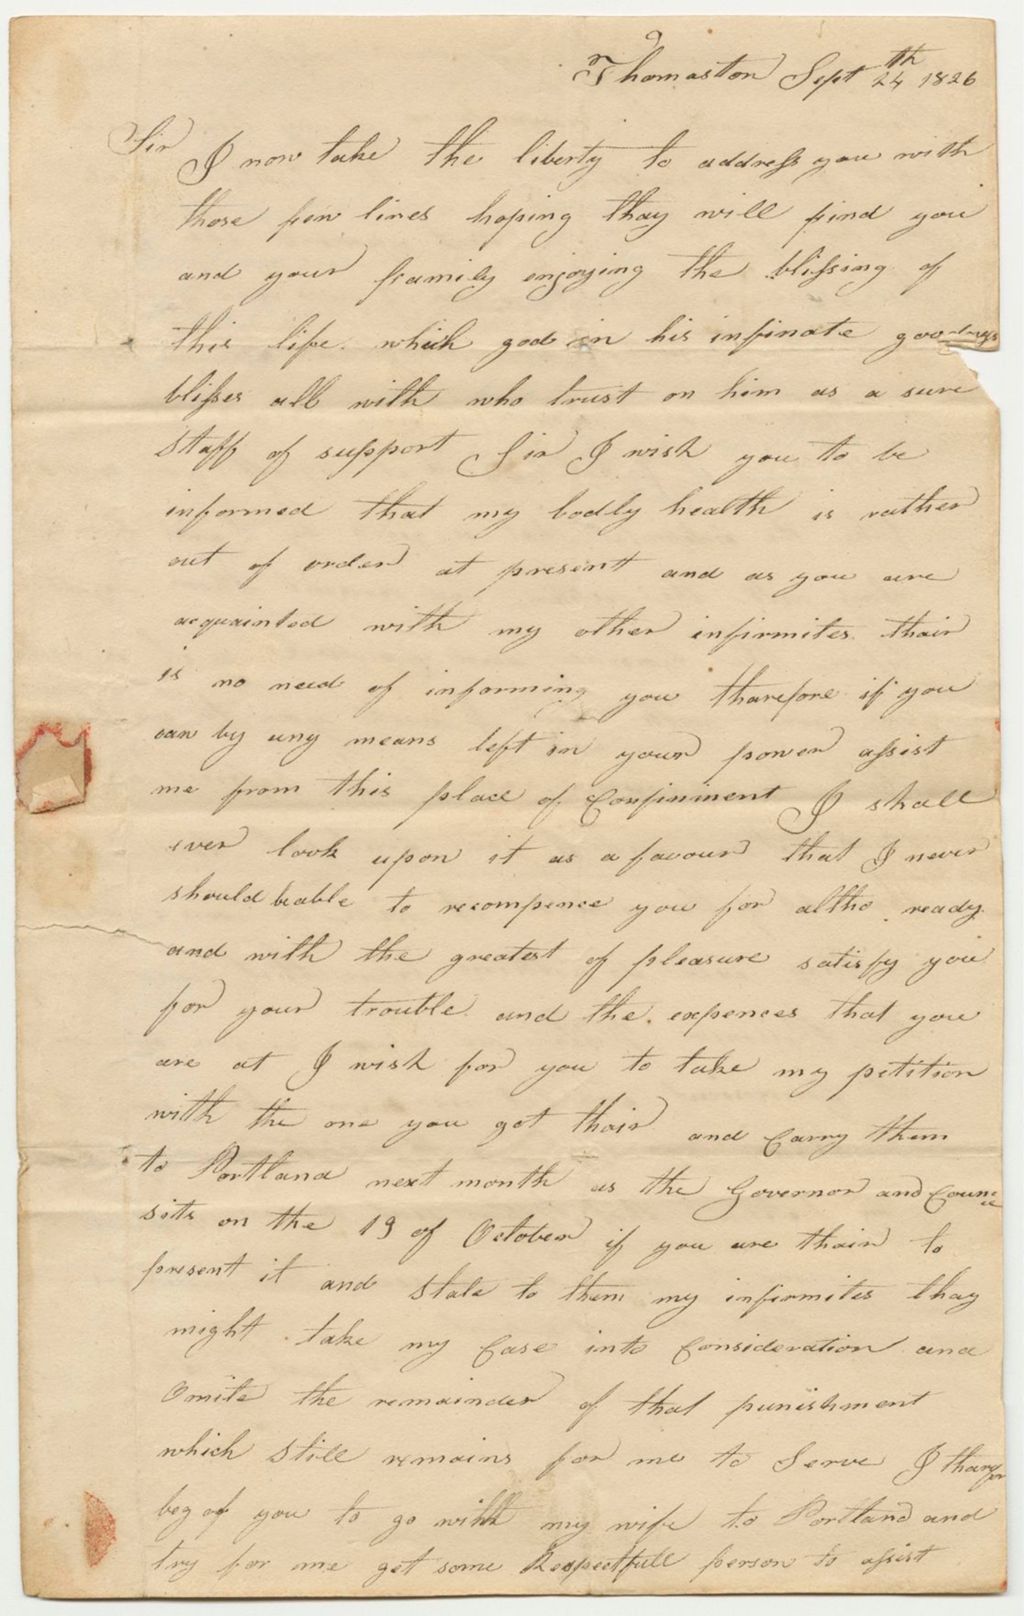 Thomaston Sept 24th 1826
Sir I now take the liberty to address you with
those few lines hoping thay will find you
and your framily enjoying the blissing of
this life which god in his infinate goodness
blisses all with who trust on him as a sure
staff of support Sir I wish you to be
informed that my bodly health is rather
out of order at present and as you are
acquainted with my other infirmites thair
is no need of informing you tharefore if you
can by any means left in your power assist
me from this place of Confiniment I shall
ever look upon it as a favour that I never
should beable to recompence you for altho ready
and with the greatest of pleasure satisfy you
for your trouble and the expences that you
are at I wish for you to take my petition
with the one you got thair and Carry them
to Portland next month as the Governor and Councel
sits on the 19 of October if you are thair to
present it and state to them my infirmites thay
might take my Case into Consideration and
Omite the remainder of that punishment
which still remains for me to Serve I tharefor
beg of you to go with my wife to Portland and
try for me get some Respectfull person to assist